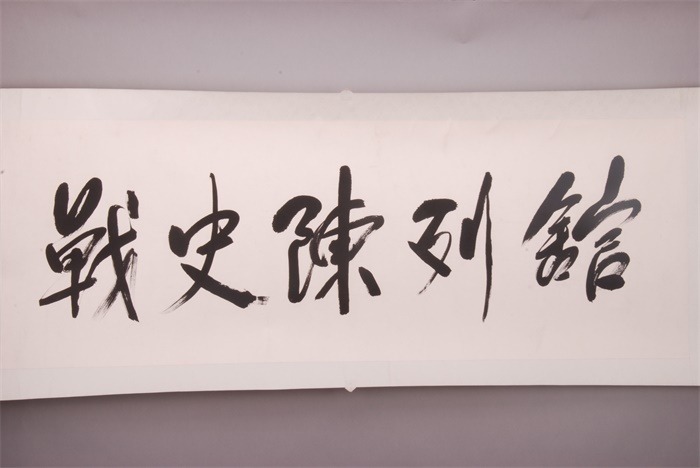 戰史陳列舘